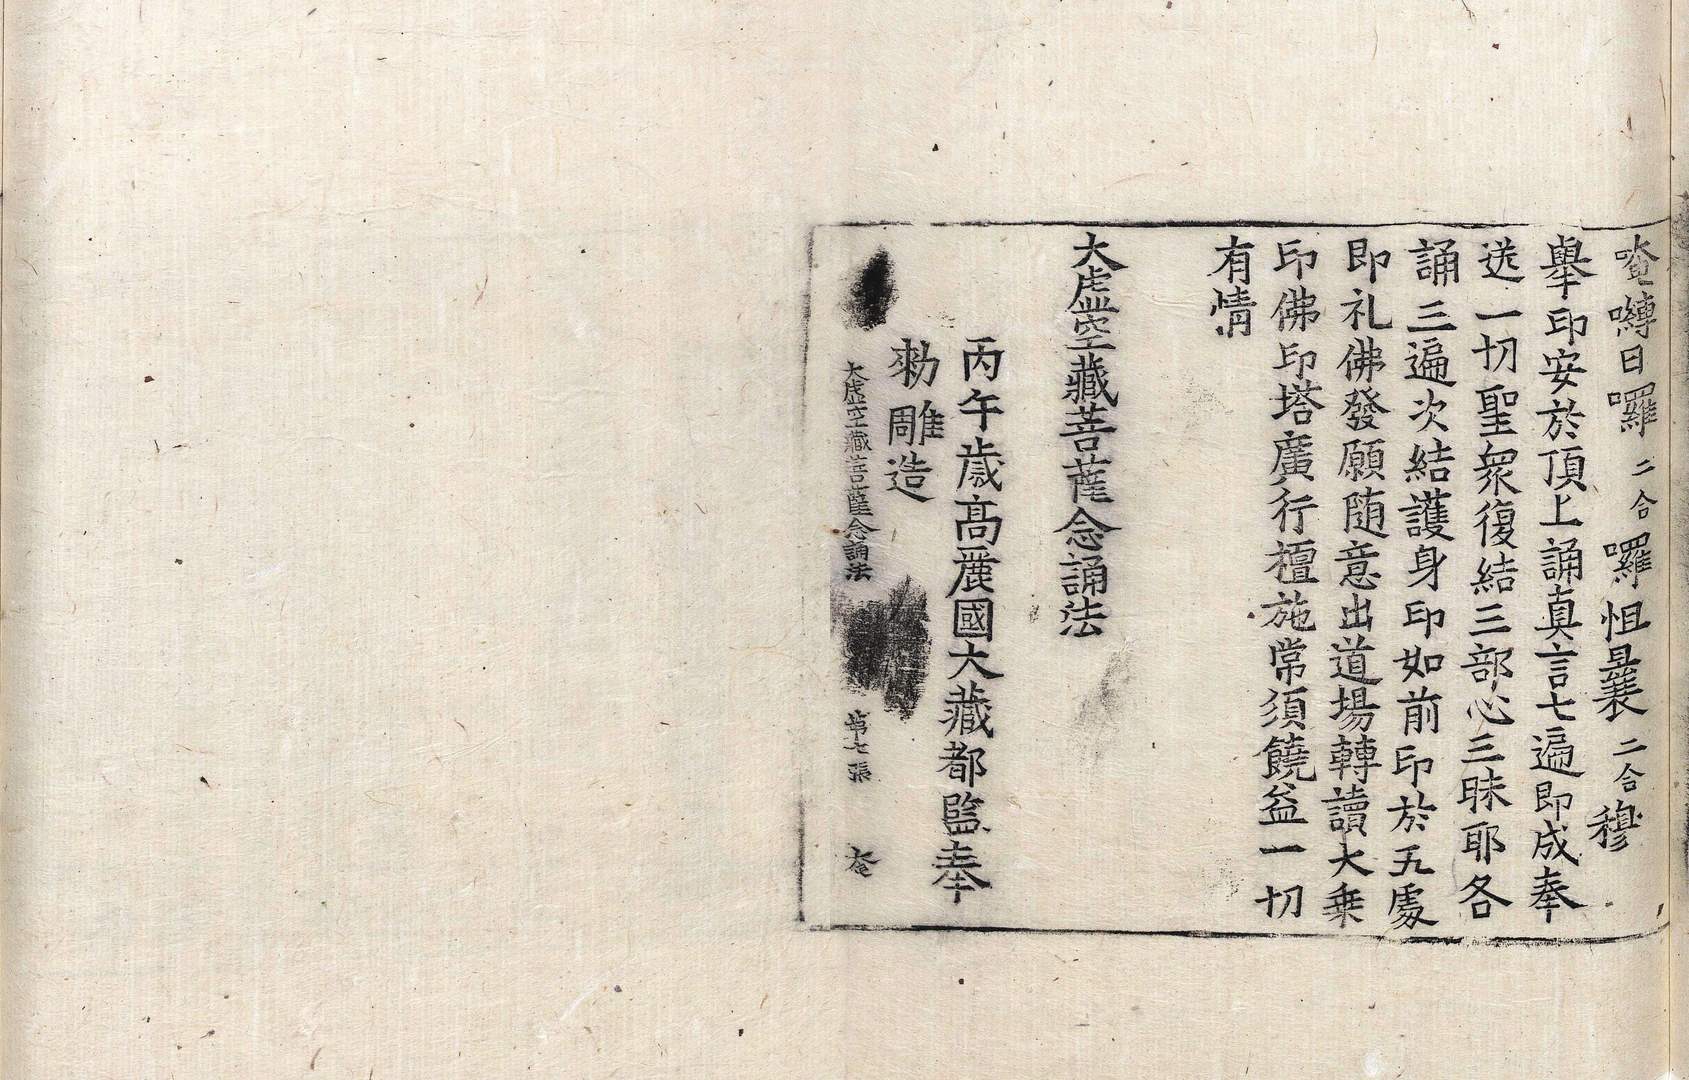 唵嚩日囉二合囉怛曩二合穆
舉印安於頂上誦真言七遍即成奉
送一切聖衆復結三部心三昧耶各
誦三遍次結護身印如前印於五處
即礼佛發願随意出道場轉讀大乗
印佛印塔廣行檀施常須饒益一切
有情
大虛空藏菩薩念誦法
丙午歲高麗國大藏都監奉
勑雕造
大虛空藏菩薩念誦法 第七張